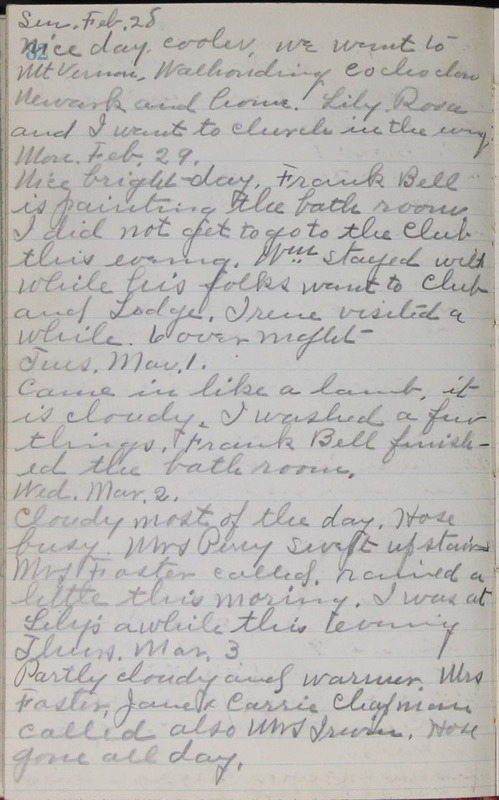 Sun. Feb. 28
32
Nice day. cooler, we went to
Mt Vernon, Walhonding Cochocton
Newark and home. Lily. Rosa
and I went to church in the evng.
Mon. Feb. 29.
Nice bright day. Frank Bell
is painting the bath room
I did not get to go to the Club
this evening. Wm stayed with
while his folks went to Club
and Lodge. Irene visited a
while. over night
Tues. Mar. 1.
Came in like a lamb, it
is cloudy. I washed a few
things. Frank Bell finish-
ed the bath room.
Wed. Mar. 2.
Cloudy most of the day. Hose
busy. Mrs Perry Swept upstairs
Mrs Foster called. rained a
little this morning. I was at
Lily's awhile this evening
Thurs. Mar. 3
Partly cloudy and warmer. Mrs
Foster, Jane & Carrie Chapman
called also Mrs Irwin. Hose
gone all day.